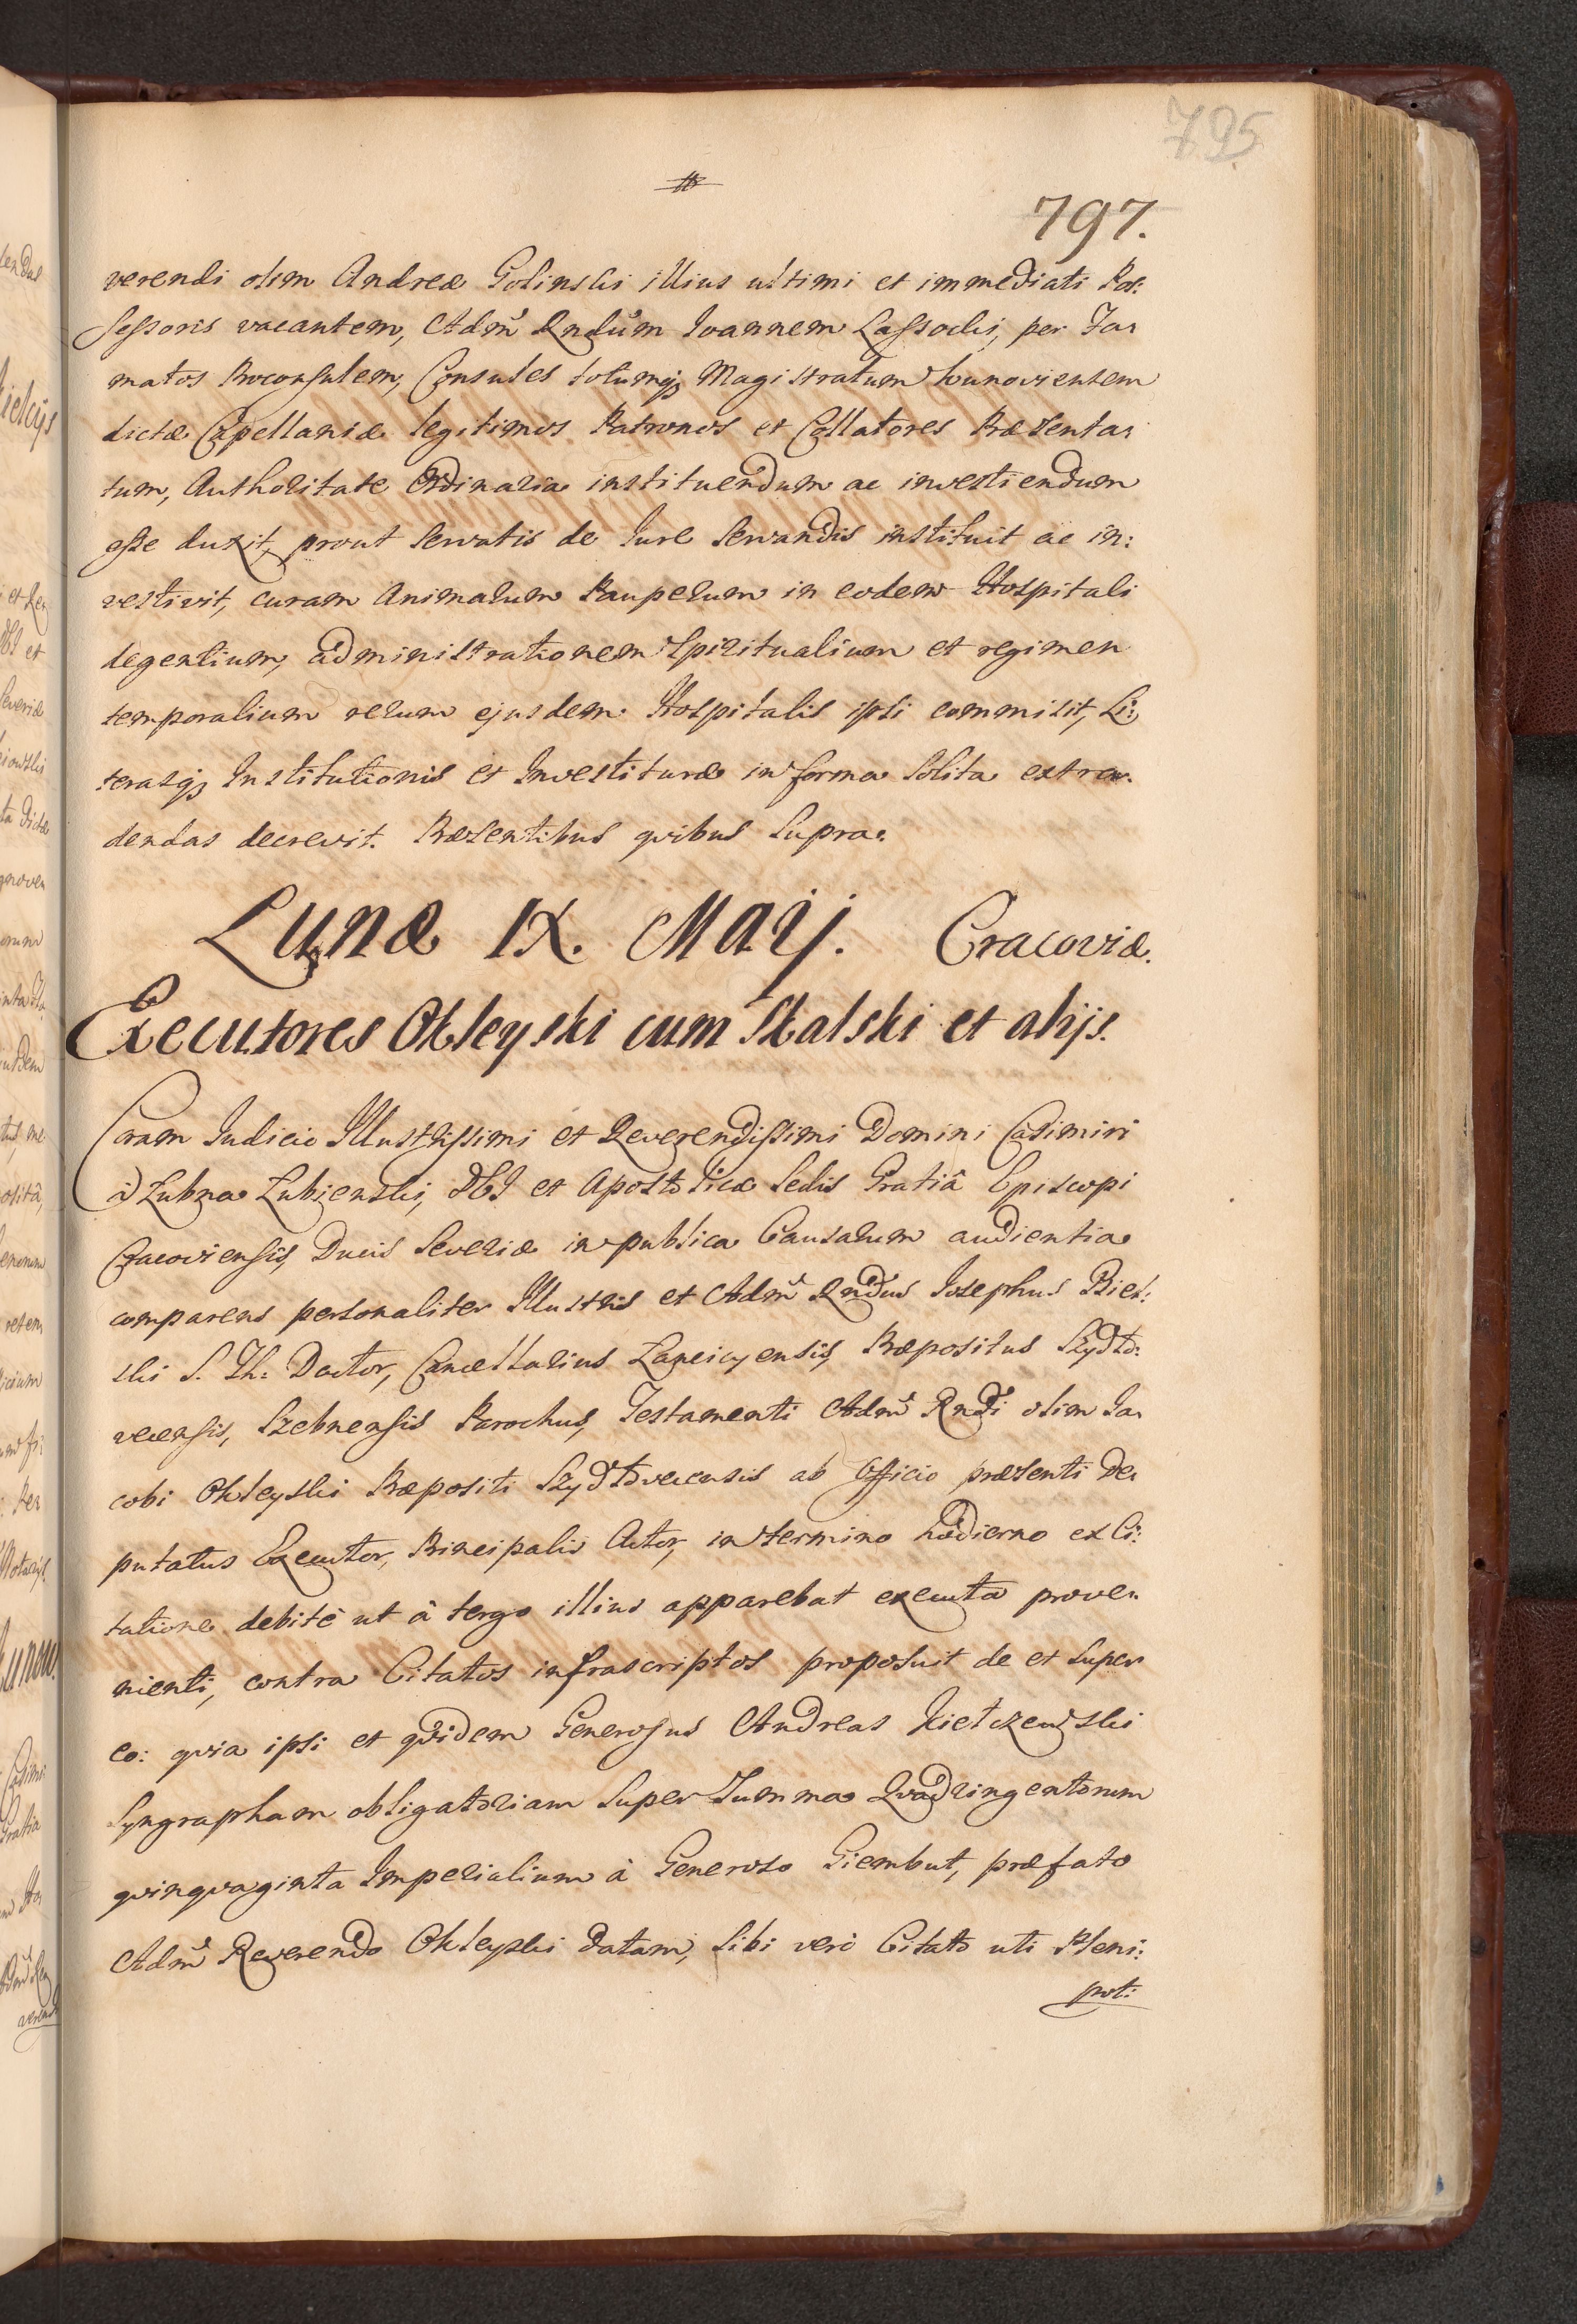 795
797.
verendi olim Andreæ Golinski illius ultimi et immediati Pos:
sessoris vacantem, Adm̃ Rndũm Ioannem Lassocki, per Fa:
matos Proconsulem, Consules totumq; Magistratum Kunoviensem
dictæ Capellaniæ legitimos Patronos et Collatores Præsenta:
tum, Authoritate Ordinaria instituendum ac investiendum
esse duxit, prout servatis de Iure servandis instituit ac in:
vestivit, curam Animarum Pauperum in eodem Hospitali
degentium, administrationem Spiritualium et regimen
temporalium rerum ejusdem Hospitalis ipsi commisit, Li:
terasq; Institutionis et Investituræ in forma solita extra:
dendas decrevit. Præsentibus quibus supra.
Lunæ IX. Maij. Cracoviæ.
Executores Okleyski cum Skalski et alijs.
Coram Iudicio Illustrissimi et Reverendissimi Domini Casimiri
à Łubna Łubienski, DEI et Apostolicæ Sedis Gratiâ Episcopi
Cracoviensis, Ducis Severiæ in publica Causarum audientia
comparens personaliter Illustris et Adm̃ Rndus Josephus Biel:
ski S. Th: Doctor, Cancellarius Lanciciensis, Præpositus Szydło:
veciensis, Szebnensis Parochus, Testamenti Adm̃ Rndi olim Ia:
cobi Okleyski Præpositi Szydłoveciensis ab Officio præsenti De:
putatus Executor, Principalis Actor, in termino hodierno ex Ci:
tatione debitè ut à tergo illius apparebat executa prove:
nienti, contra Citatos infrascriptos proposuit de et super
eo: quia ipsi et quidem Generosus Andreas Kiełczewski
Syngrapham obligatoriam super Summa Quadringentorum
quinquaginta Imperialium à Generoso Giembut, præfato
Adm̃ Reverendo Okleyski datam, sibi verò Citato uti Pleni:
pot: